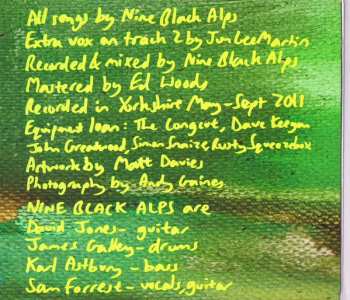 All songs by Nine Black Alps
Extra vox on track 2 by Jun Lee Martin
Recorded & mixed by Nine Black Alps
Mastered by Ed Woods
Recorded in Yorkshire May-Sept 2011
Equipment loan: The Longcut, Dave Keegan
John Greatwood, Simon Smaize, Rusty Squeezebox
Artwork by Matt Davies
Photography by Andy Gaines
NINE BLACK ALPS are
David Jones - guitar
James Galley - drums
Karl Astbury - bass
Sam Forrest - vocals, guitar